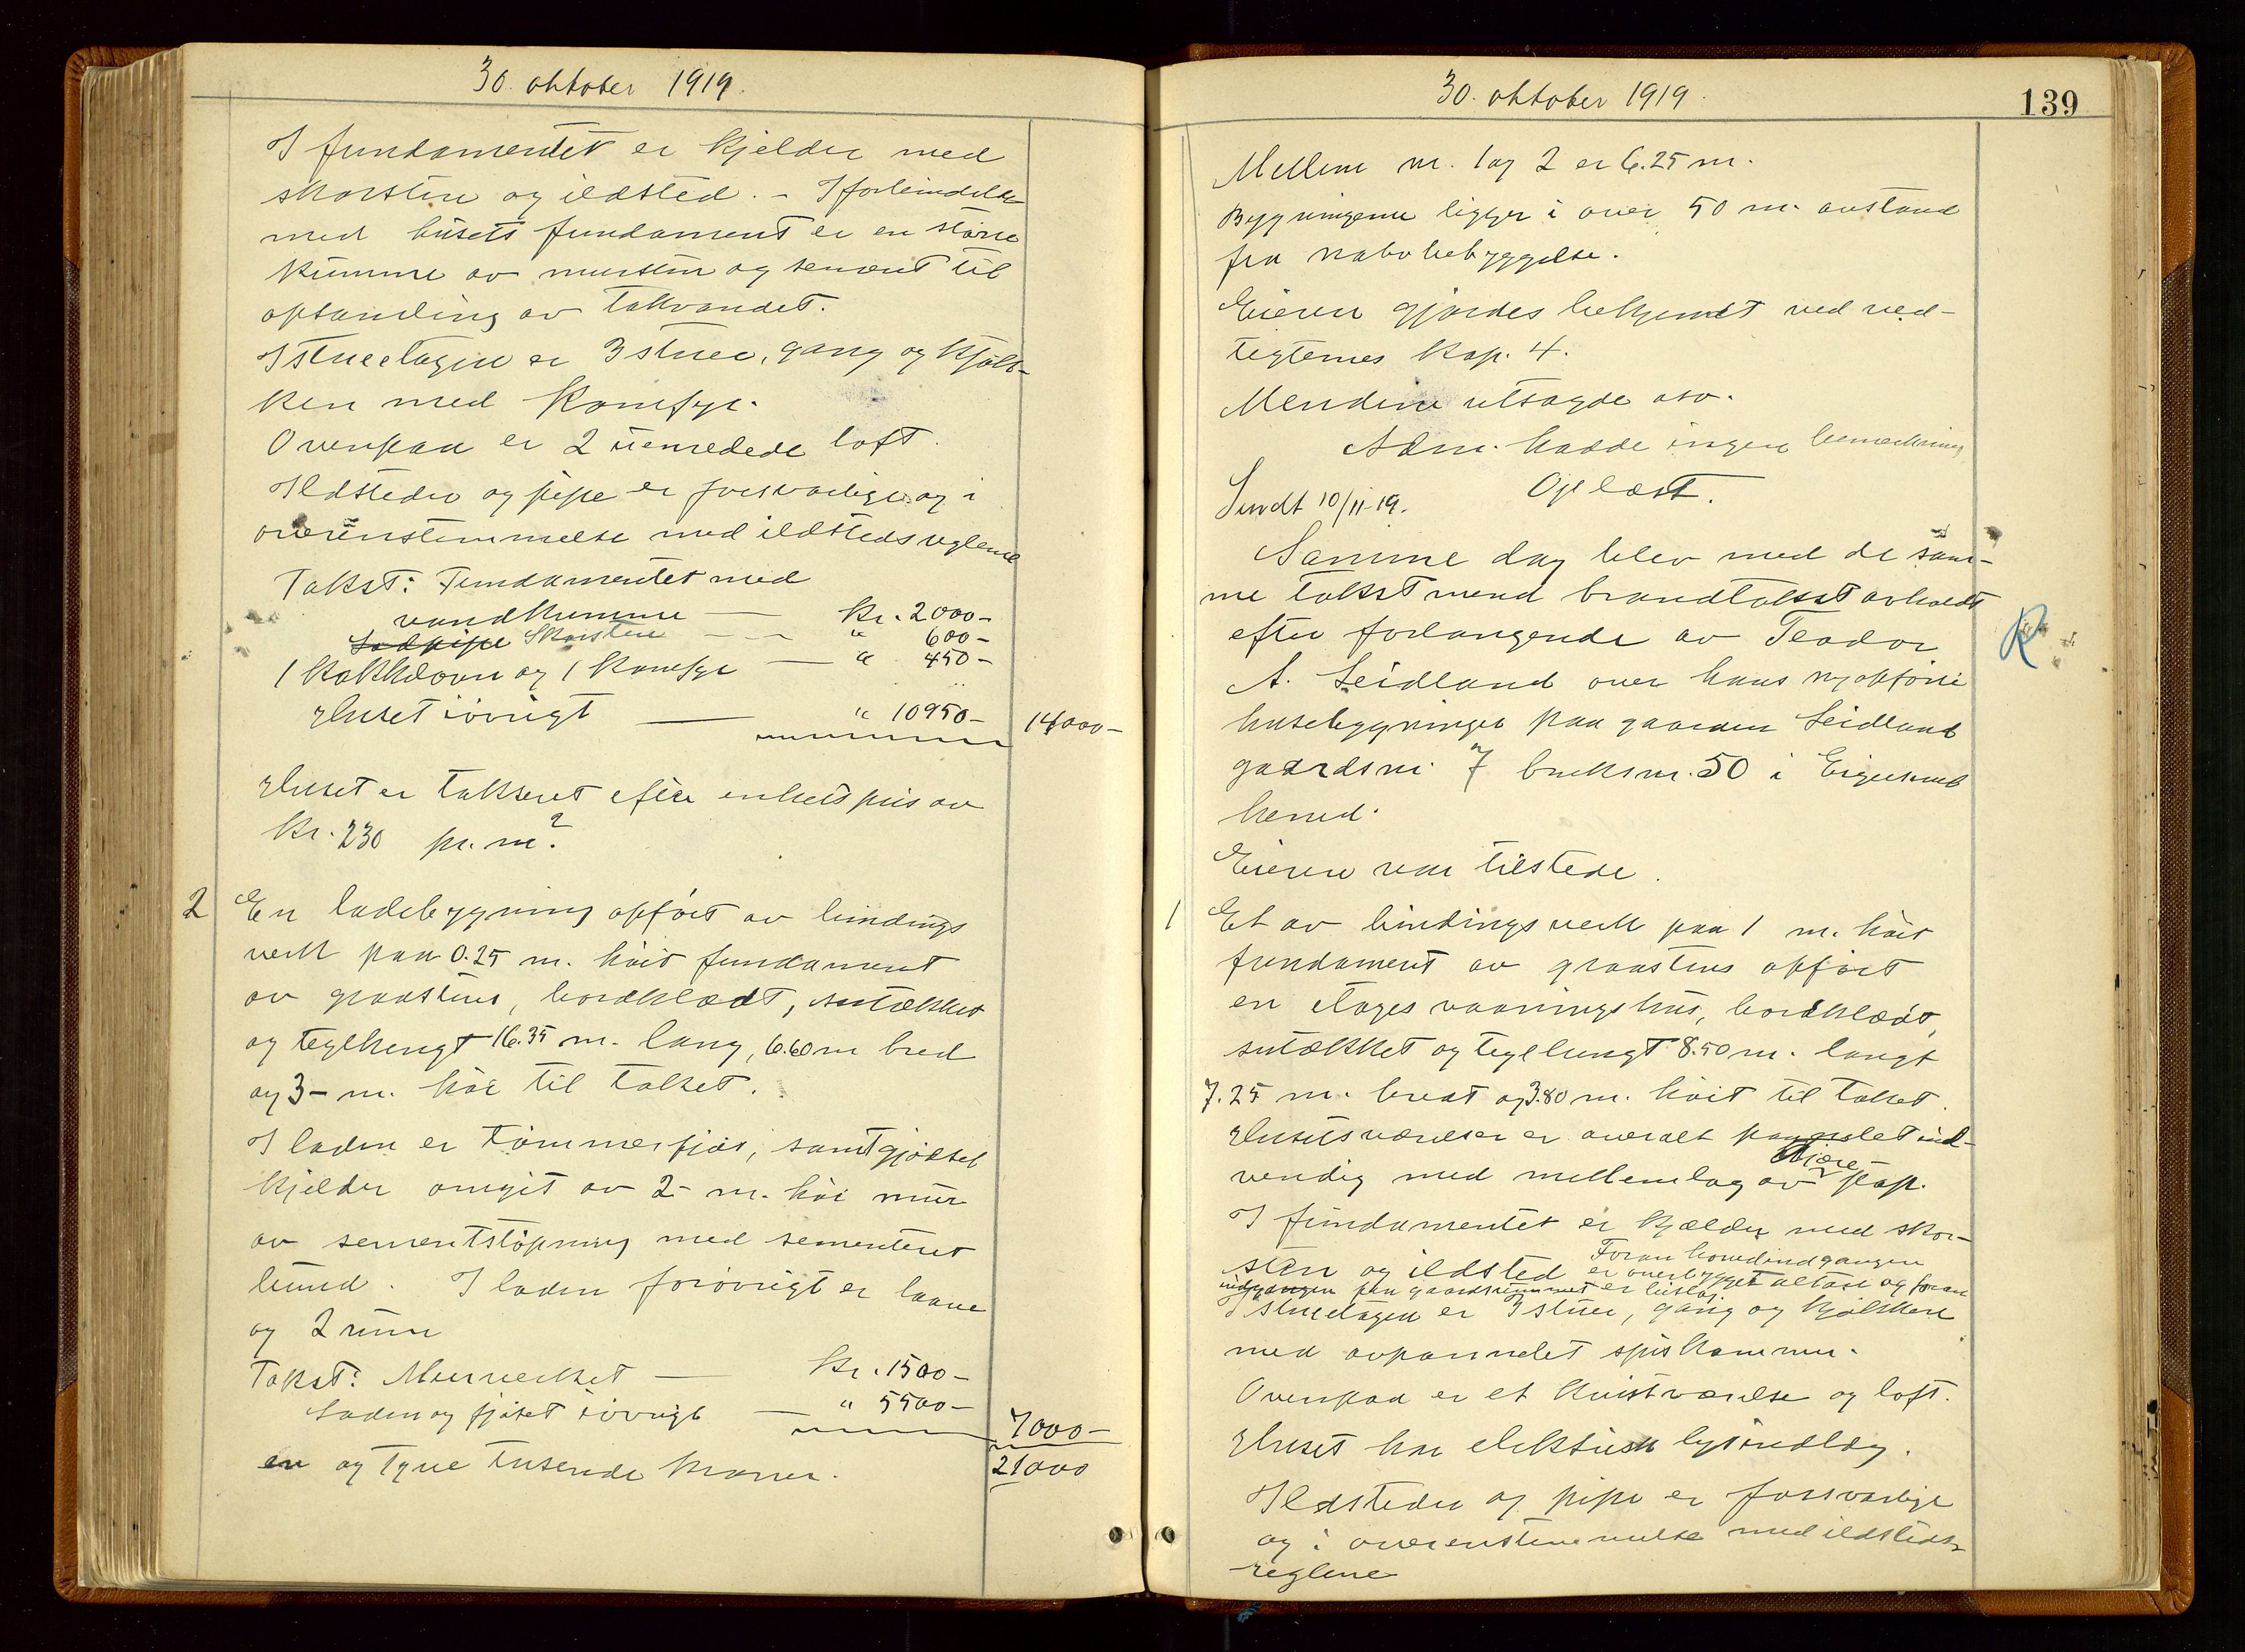 30. oktober 1919.
I fundamentet er kjelder med
skorsten og ildsted. - I forbindelse
med husets fundament er en större
kumme av mursten og sement til
opsamling av takvandet.
I stueetagen er 3 stuer, gang og kjök-
ken med komfyr.
Ovenpaa er 2 uenredede loft.
Ildsteder og pipe er forsvarlige og i
overenstemmelse med ildstedsreglene
Takst: Fundamentet med
vandkumme — kr. 2000-
Lodpipe Skorsten — " 600-
1 kakkelovn og 1 komfyr — " 450-
Huset iövrigt — " 10950- 14000-
Huset er takseret efter enhetspris av
kr. 230 pr. m².
2 En ladebygning opfört av bindings
verk paa 0.25 m. höit fundament
av graastens, bordklædt, sutækket
og teglhengt 16.35 m. lang, 6.60 m bred
og 3- m. höi til taket.
I laden er tömmerfjös, samt gjödsel
kjelder omgit av 2- m. höi mur
av sementstöpning med sementeret
bund. I laden forövrigt er laave
og 2 rum
Takst: Murverket — kr. 1500-
Laden og fjöset iövrigt — " 5500- 7000-
en og tyve tusende kroner. 21000
30. oktober 1919.
139
Mellem nr. 1 og 2 er 6.25 m.
Bygningene ligger i over 50 m. avstand
fra nabobebyggelse.
Eieren gjordes bekjendt med ved-
tegternes kap. 4.
Mendene utsagde osv.
Adm. hadde ingen bemerkning
Oplæst.
Sendt 10/11-19.
Samme dag blev med de sam-
me takstmend brandtakst avholdt
efter forlangende av Teodor
A. Leidland over hans nyopförte
husebygninger paa gaarden Leidland
gaardsnr. 7 bruksnr. 50 i Eigersund
herred.
R
Eieren var tilstede.
1 Et av bindingsverk paa 1 m. höit
fundament av graastens opfört
en etages vaaningshus, bordklædt,
sutækket og teglhengt 8.50 m. langt
7.25 m. bredt og 3.80 m. höit til taket.
Husets værelser er overalt panelet ind-
vendig med mellemlag av tjære pap.
I fundamentet er kjælder med skor-
sten og ildsted Foran hovedindgangen
er overbygget altan og foran
indgangen paa gaardsrummet er bislag
I stueetagen er 3 stuer, gang og kjökken
med avpannelet spiskammer.
Ovenpaa er et kvistværelse og loft.
Huset har elektrisk lysindlæg.
Ildsteder og pipe er forsvarlige
og i overenstemmelse med ildsteds-
reglene